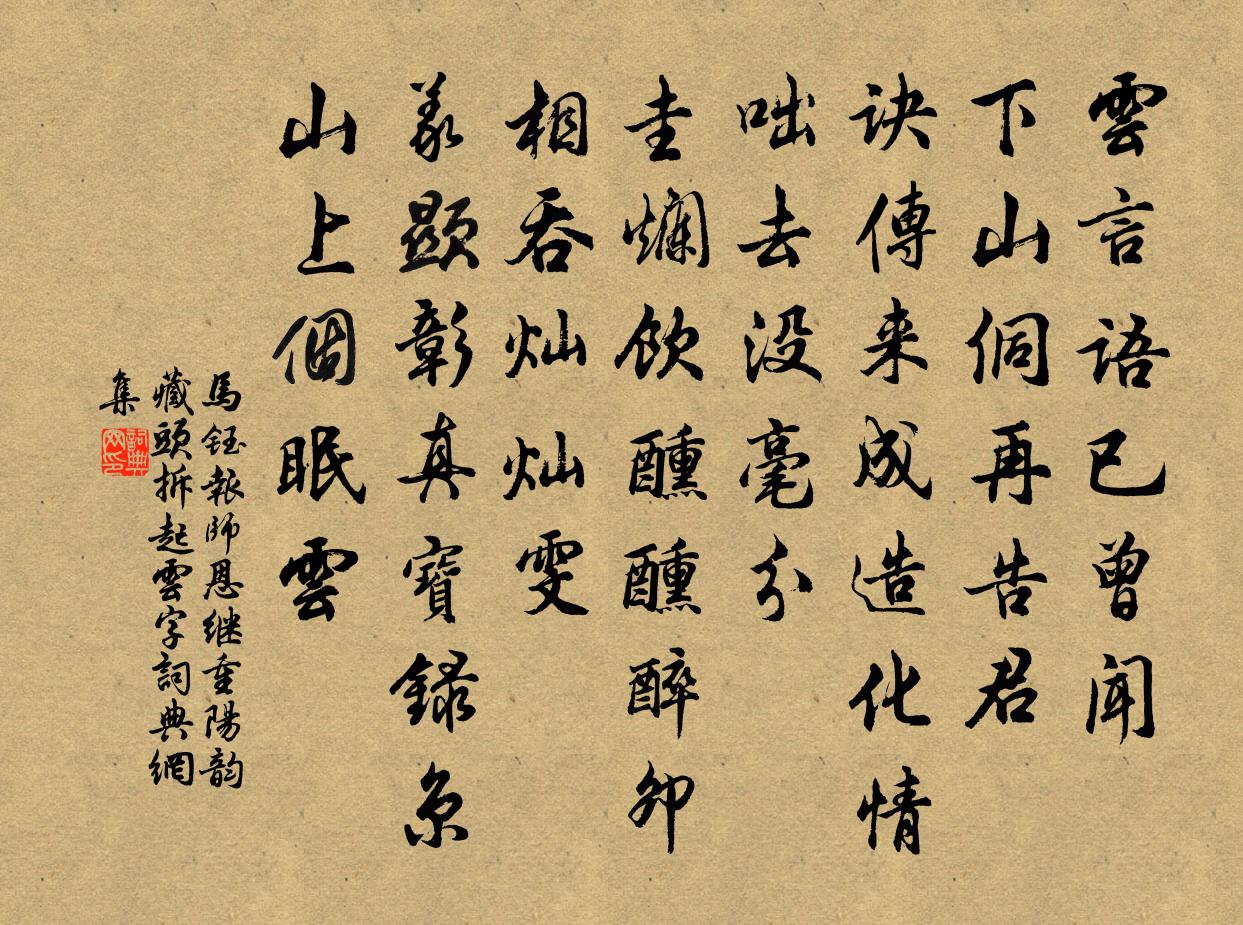 雲言語已曾聞
下山侗再告君
訣傳来成造化情
咄去没毫分
圭爛飲醺醺醉卯
相吞灿灿雯
義顯彰真寶録京
山上個眠雲
馬鈺報師恩继重陽韵
藏頭拆起雲字詞典網
集
詞典网印